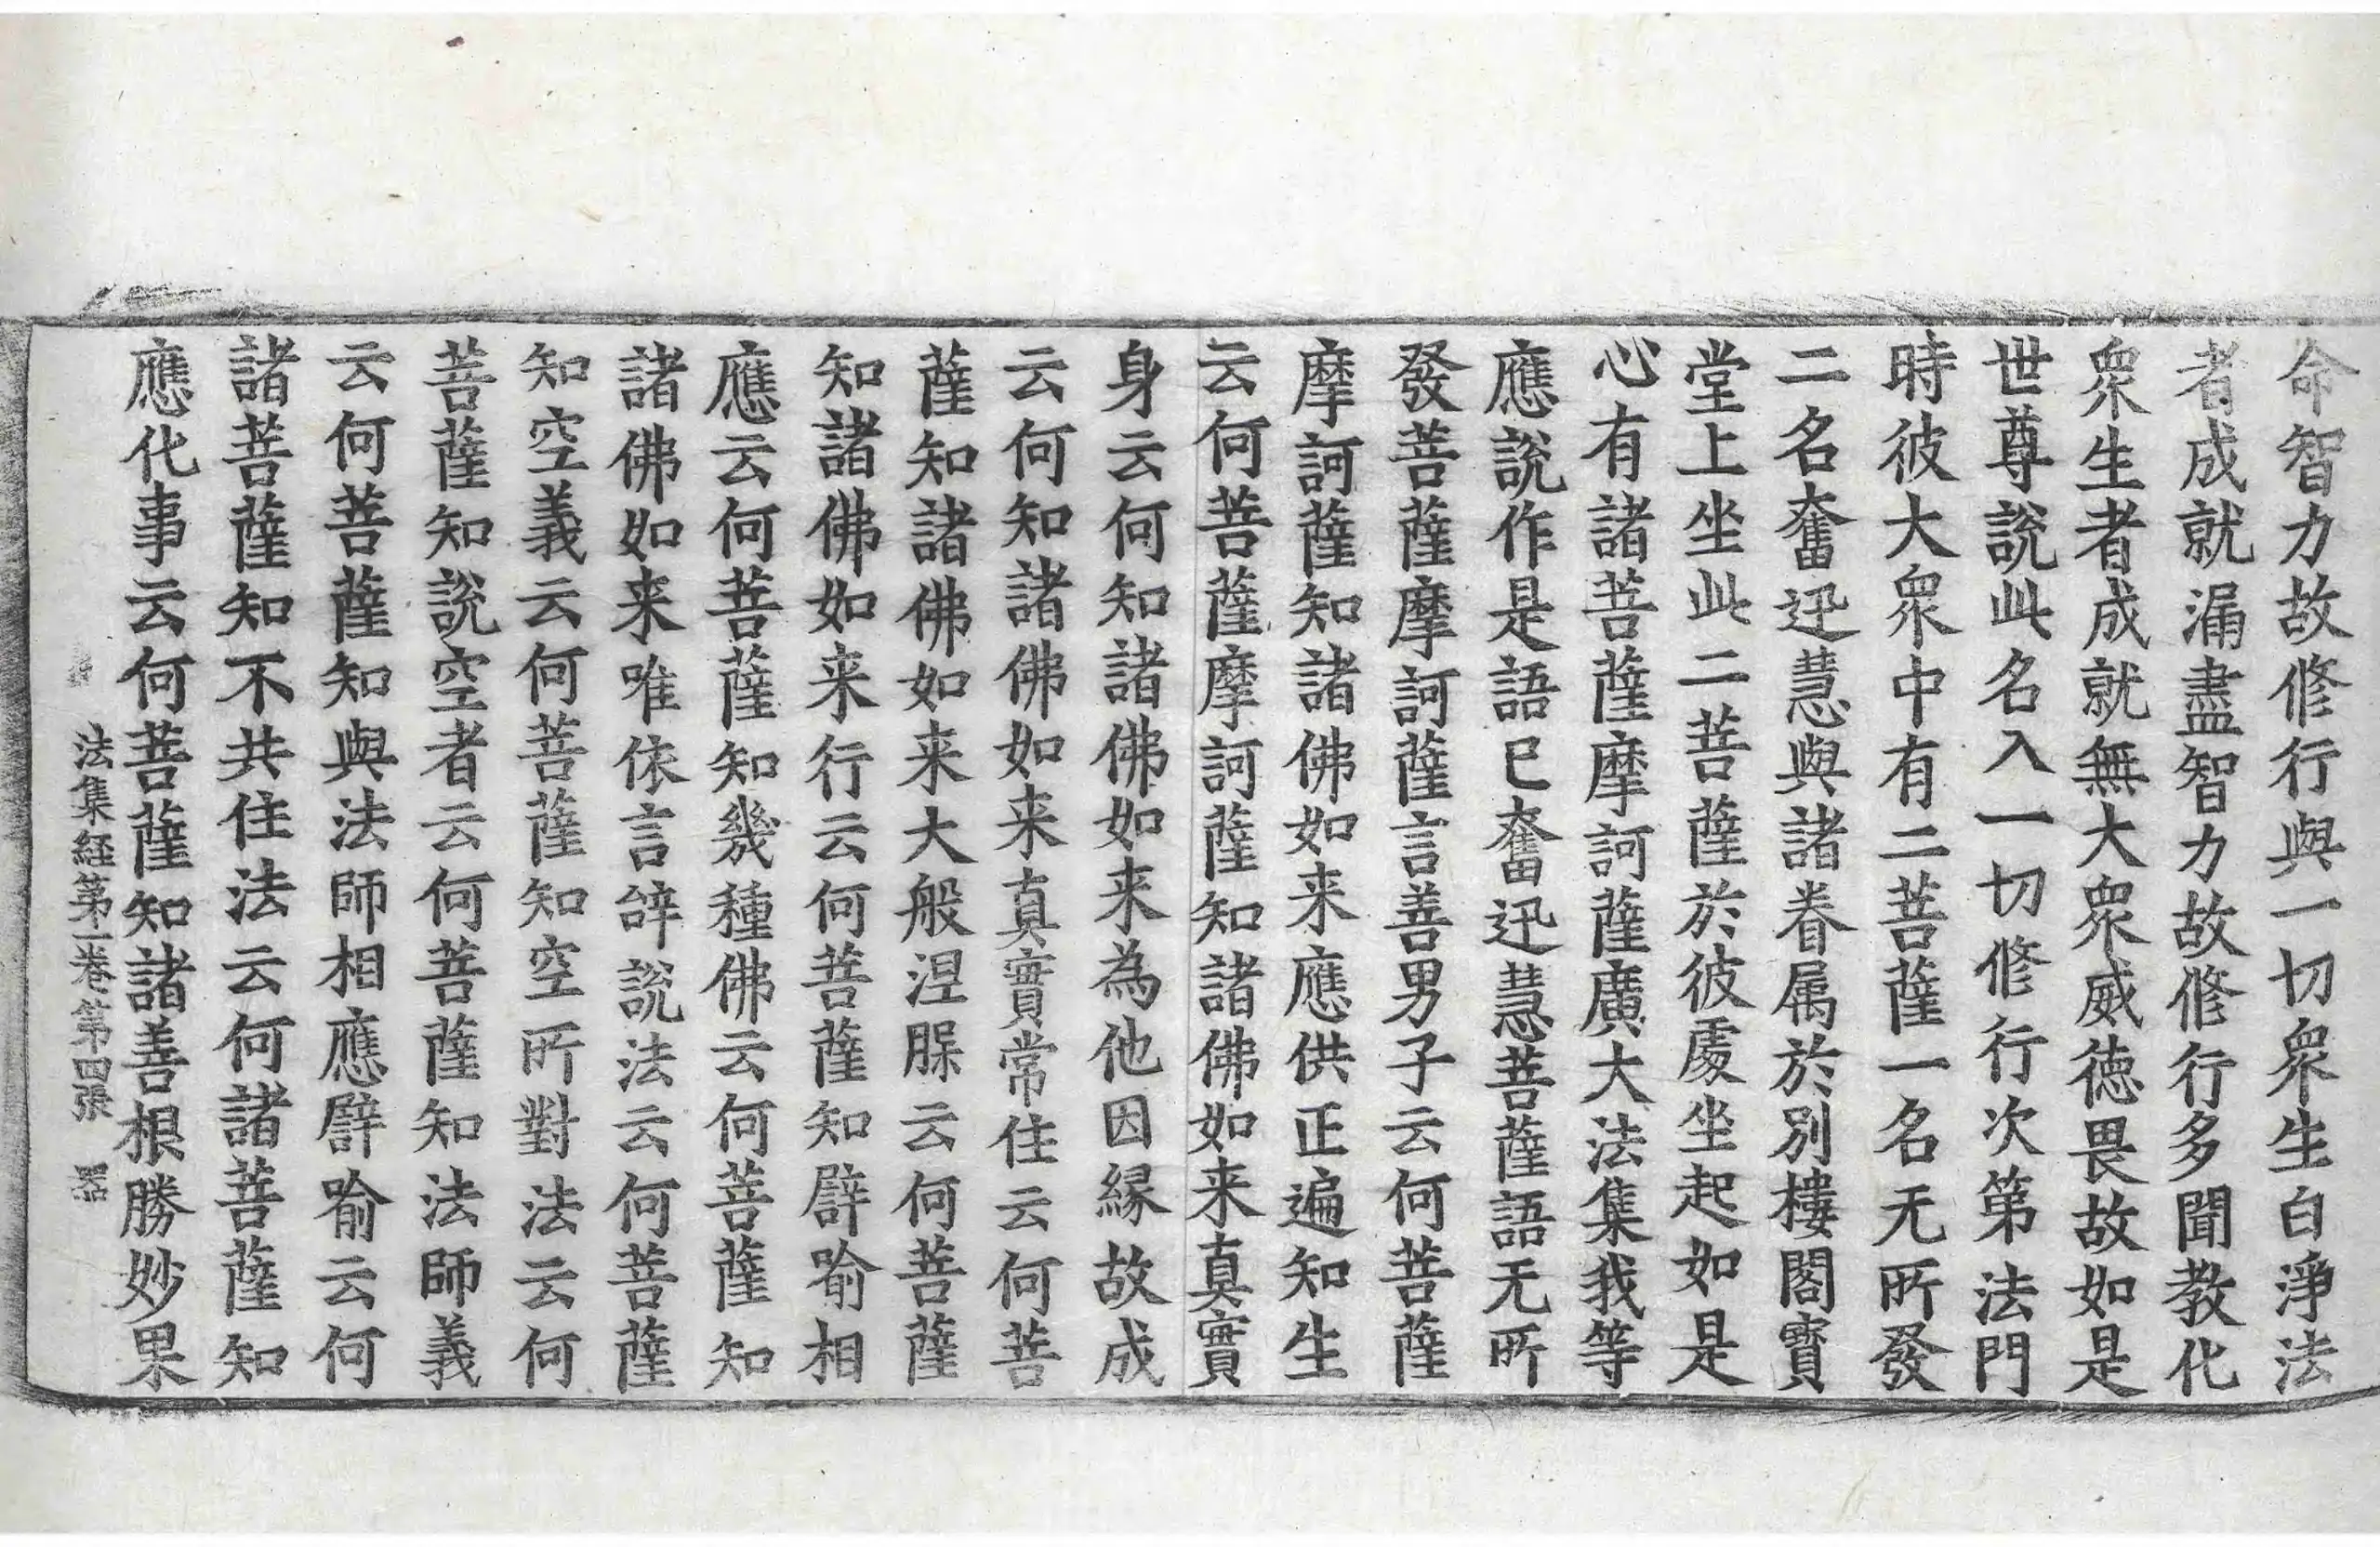 命智力故修行與一切衆生白淨法
者成就漏盡智力故修行多聞教化
衆生者成就無大衆威徳畏故如是
世尊說此名入一切修行次第法門
時彼大衆中有二菩薩一名无所發
二名奮迅慧與諸眷属於別樓閣寶
堂上坐此二菩薩於彼處坐起如是
心有諸菩薩摩訶薩廣大法集我等
應說作是語已奮迅慧菩薩語无所
發菩薩摩訶薩言善男子云何菩薩
摩訶薩知諸佛如来應供正遍知生
云何菩薩摩訶薩知諸佛如来真實
身云何知諸佛如来為他因縁故成
云何知諸佛如来真實常住云何菩
薩知諸佛如来大般涅脲云何菩薩
知諸佛如来行云何菩薩知譬喻相
應云何菩薩知幾種佛云何菩薩知
諸佛如来唯依言辝說法云何菩薩
知空義云何菩薩知空所對法云何
菩薩知說空者云何菩薩知法師義
云何菩薩知與法師相應譬喻云何
諸菩薩知不共住法云何諸菩薩知
應化事云何菩薩知諸善根勝妙果
法集経第一卷第四張 器